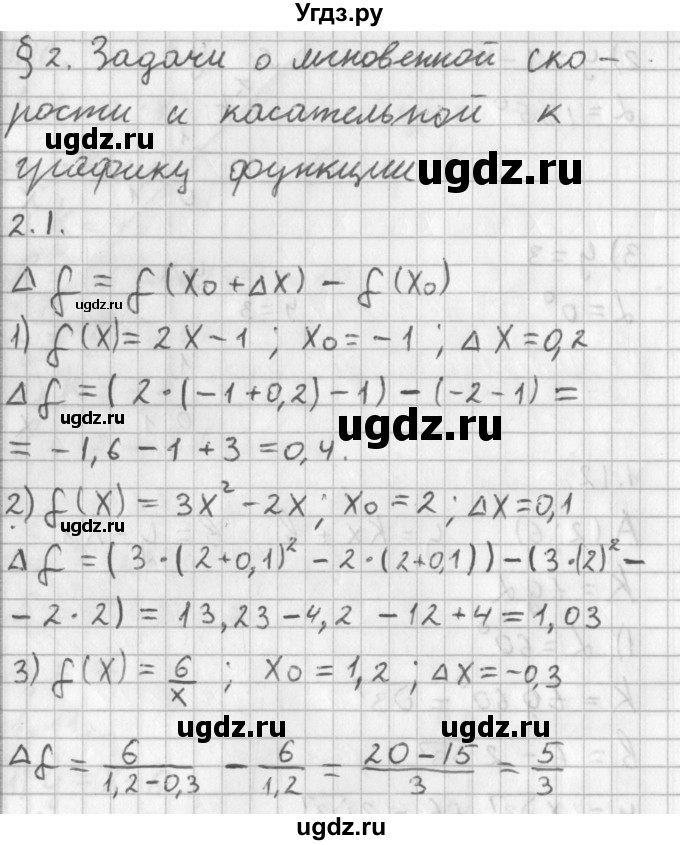 Угдз.ру
§ 2. Задачи о мгновенной ско-
рости и касательной к
ugdz.ru
графику функции
ugdz.ru
2.1.
Δf = f(x₀ + Δx) - f(x₀)
ugdz.ru
1) f(x) = 2x - 1 ; x₀ = -1 ; Δx = 0,2
Δf = (2·(-1+0,2)-1) - (-2-1) =
ugdz.ru
ugdz.ru
= -1,6 - 1 + 3 = 0,4.
2) f(x) = 3x² - 2x ; x₀ = 2 ; Δx = 0,1
ugdz.ru
Δf = (3·(2+0,1)² - 2·(2+0,1)) - (3·(2)² -
- 2·2) = 13,23 - 4,2 - 12 + 4 = 1,03
3) f(x) = 6/x ; x₀ = 1,2 ; Δx = -0,3
ugdz.ru
ugdz.ru
Δf = 6/(1,2-0,3) - 6/1,2 = (20-15)/3 = 5/3
ugdz.ru